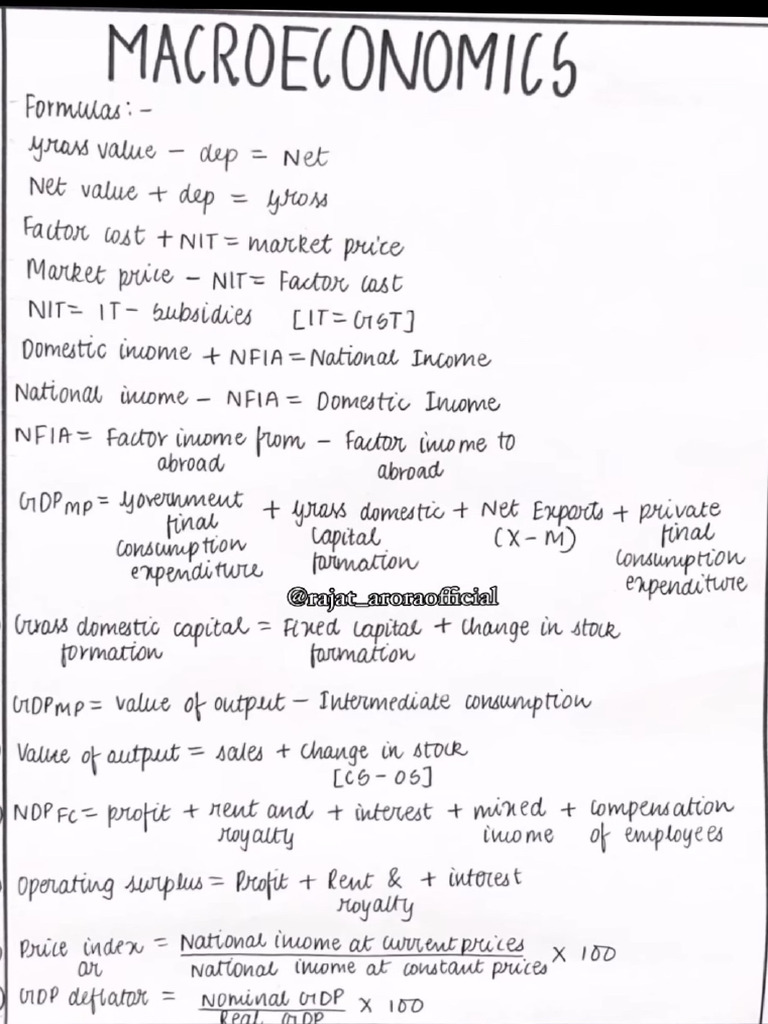 MACROECONOMICS
Formulas:-
Gross value - dep = Net
Net value + dep = Gross
Factor cost + NIT = market price
Market price - NIT = Factor cost
NIT = IT - subsidies [IT = GST]
Domestic income + NFIA = National Income
National income - NFIA = Domestic Income
NFIA = Factor income from - Factor income to
abroad abroad
GDPMP = Government + Gross domestic + Net Exports + private
final capital (X - M) final
consumption formation consumption
expenditure expenditure
@rajat_aroraofficial
Gross domestic capital = Fixed capital + change in stock
formation formation
GDPMP = value of output - Intermediate consumption
Value of output = sales + change in stock
[CS - OS]
NDP FC = profit + rent and + interest + mixed + compensation
royalty income of employees
Operating surplus = Profit + Rent & + interest
royalty
Price index = National income at current prices × 100
or National income at constant prices
GDP deflator = Nominal GDP × 100
Real GDP